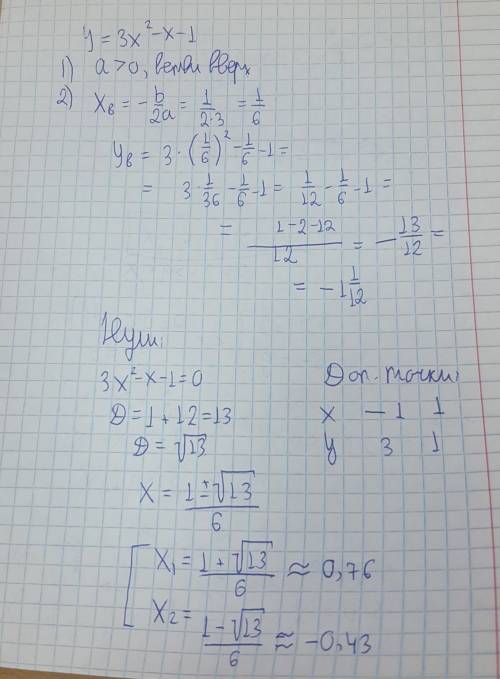 y = 3x² - x - 1
1) a > 0, ветви вверх
2) xв = -b/2a = 1/2·3 = 1/6
yв = 3·(1/6)² - 1/6 - 1 =
= 3·1/36 - 1/6 - 1 = 1/12 - 1/6 - 1 =
= 1-2-12/12 = -13/12 =
= -1 1/12
Нули:
3x² - x - 1 = 0
D = 1 + 12 = 13
D = √13
x = 1±√13/6
x₁ = 1+√13/6 ≈ 0,76
x₂ = 1-√13/6 ≈ -0,43
Доп. точки:
x -1 1
y 3 1